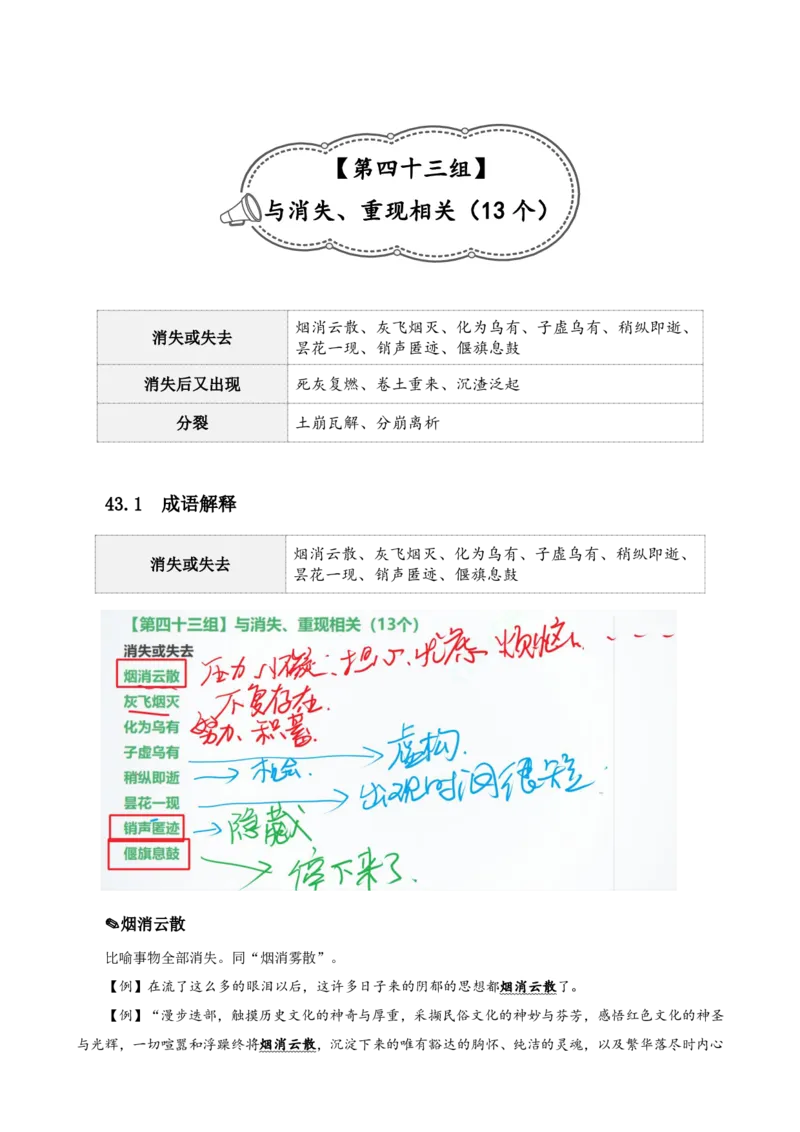 【第四十三组】
与消失、重现相关（13 个）
消失或失去
烟消云散、灰飞烟灭、化为乌有、子虚乌有、稍纵即逝、
昙花一现、销声匿迹、偃旗息鼓
消失后又出现
死灰复燃、卷土重来、沉渣泛起
分裂
土崩瓦解、分崩离析
43.1 成语解释
消失或失去
烟消云散、灰飞烟灭、化为乌有、子虚乌有、稍纵即逝、
昙花一现、销声匿迹、偃旗息鼓
【第四十三组】与消失、重现相关（13个）
消失或失去
烟消云散 压力、顾虑、担心、忧虑、烦恼
灰飞烟灭 不复存在.
化为乌有 努力、积蓄.
子虚乌有 虚构.
稍纵即逝 机会.
昙花一现 出现时间很短.
销声匿迹 隐藏
偃旗息鼓 停下来了.
✎烟消云散
比喻事物全部消失。同“烟消雾散”。
【例】在流了这么多的眼泪以后，这许多日子来的阴郁的思想都烟消云散了。
【例】“漫步迭部，触摸历史文化的神奇与厚重，采撷民俗文化的神妙与芬芳，感悟红色文化的神圣
与光辉，一切喧嚣和浮躁终将烟消云散，沉淀下来的唯有豁达的胸怀、纯洁的灵魂，以及繁华落尽时内心